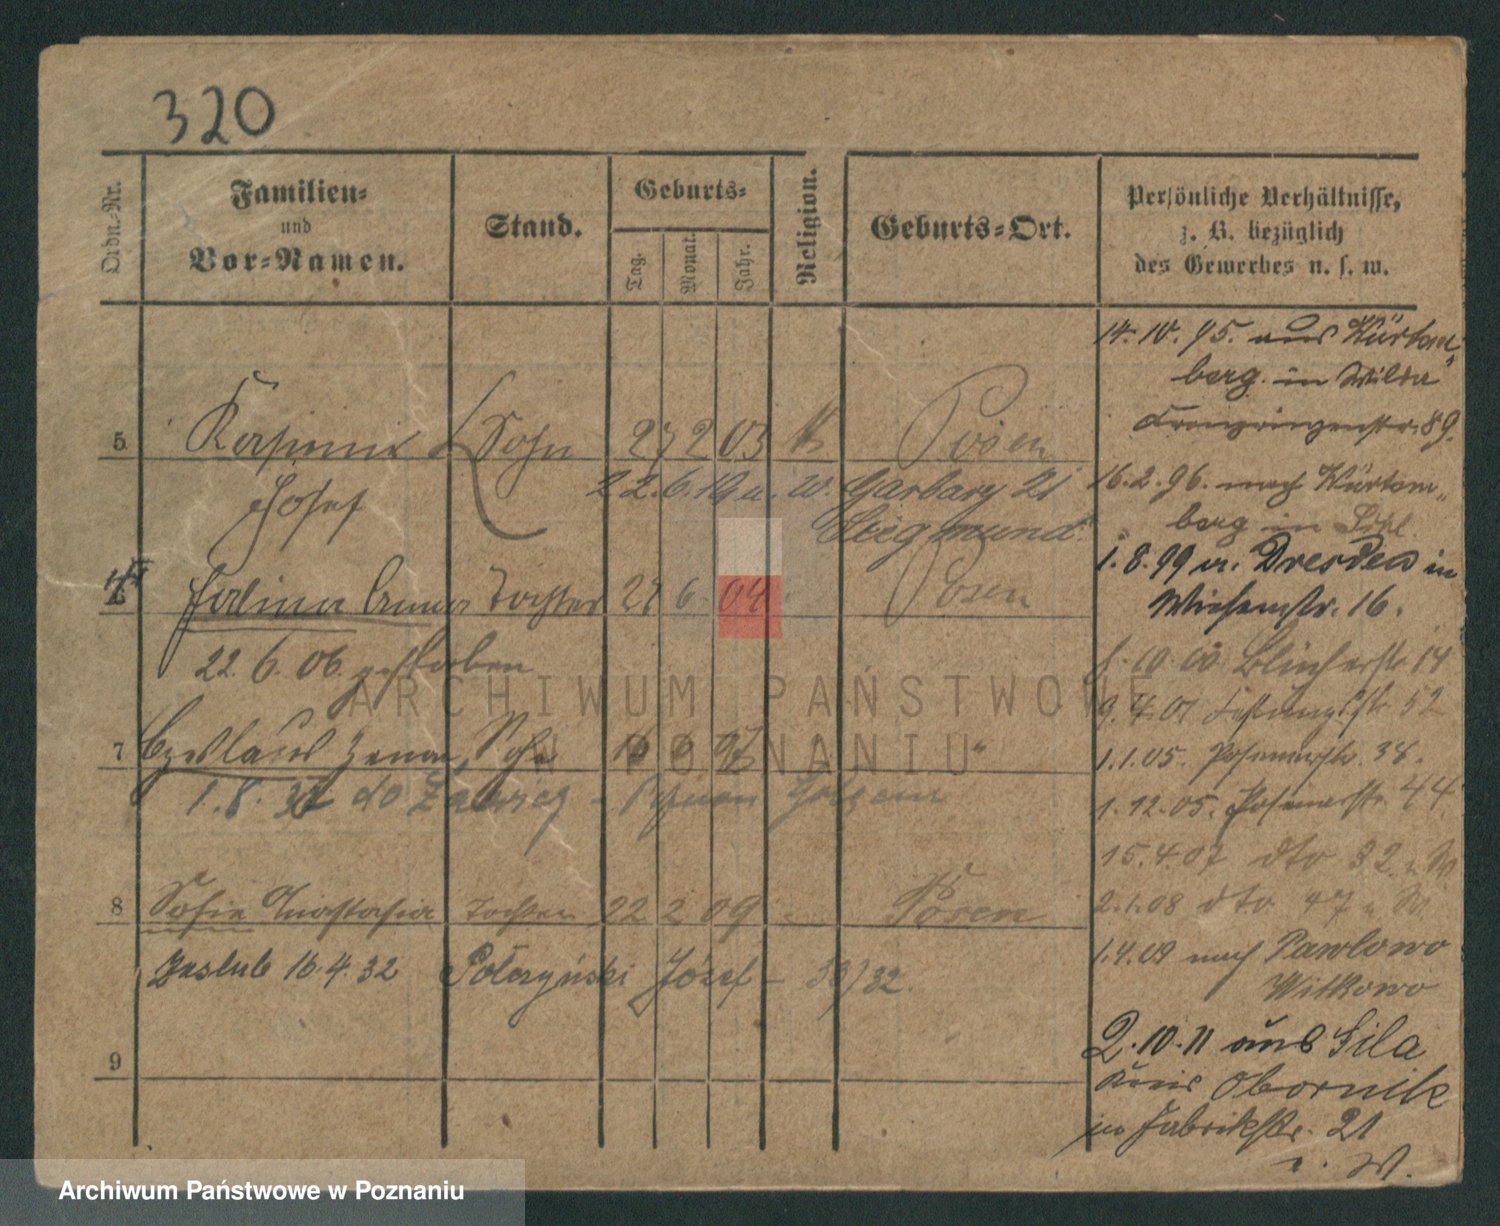 320
Ordn.-Nr.
Familien-
und
Vor-Namen.
Stand.
Geburts-
Tag.
Monat.
Jahr.
Religion.
Geburts-Ort.
Persönliche Verhältnisse,
z. B. bezüglich
des Gewerbes u. s. w.
5 Kasimir Sohn 27 2 03 Posen
Josef
22.6.19 u. W. Garbary 21
Siegmund
Halina Anna Tochter 27 6 04 Posen
22.6.06 gestorben
7 Czeslaus Zenon, Sohn
1.8.32 do
8 Sofie Anastasia Tochter 22 2 09 Posen
Zaślub 16.4.32 Połczyński Józef – 53/32.
9
14.10.95. aus Würtem-
berg in Wilda
Kronprinzenstr. 89.
16.2.96. nach Würtem-
berg in
1.8.99 v. Dresden in
Wiesenstr. 16.
10.00 Blücherstr 14
9.4.01 Festungsstr 52
1.1.05. Posenerstr. 38.
1.12.05. Posenerstr. 44
15.4.07 dto 32. u. W.
2.1.08 dto 47 u. W.
1.4.09 nach Pawlowo
Witkowo
2.10.11 aus Sila
Kreis Obornik
in Fabrikstr. 21
u. W.
ARCHIWUM PAŃSTWOWE
W POZNANIU
Archiwum Państwowe w Poznaniu